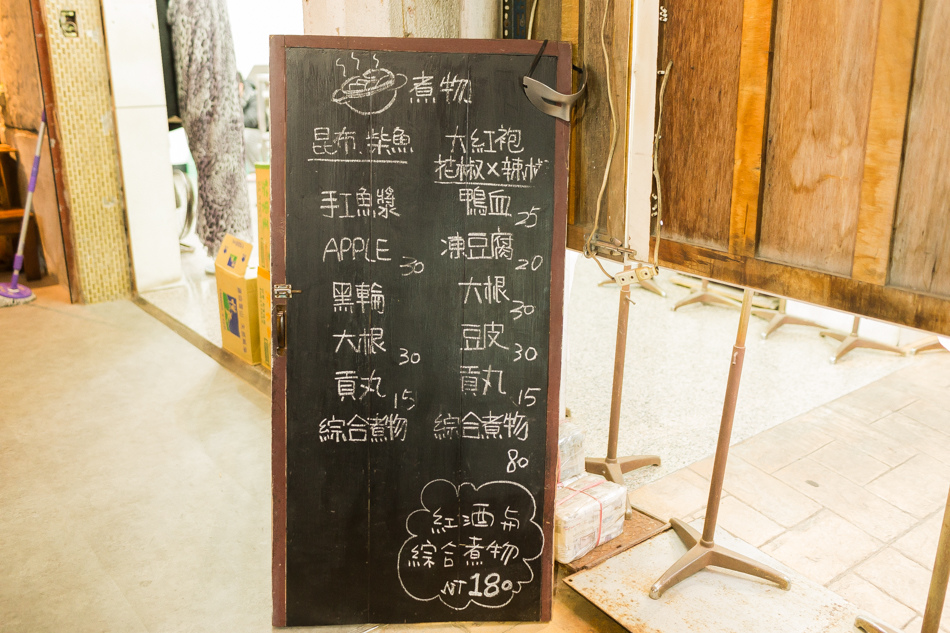 煮物
昆布.柴魚
手工魚漿
APPLE 30
黑輪
大根 30
貢丸 15
綜合煮物
大紅袍
花椒×辣椒
鴨血 25
凍豆腐 20
大根 30
豆皮 30
貢丸 15
綜合煮物
80
紅酒与
綜合煮物
NT 180